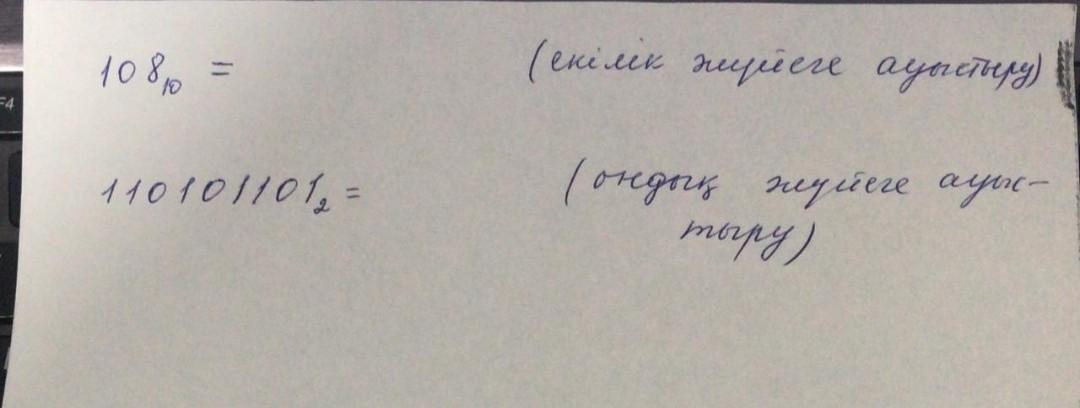 108₁₀ = (екілік жүйеге ауыстыру)
110101101₂ = (ондық жүйеге ауыс-
тыру)
F4